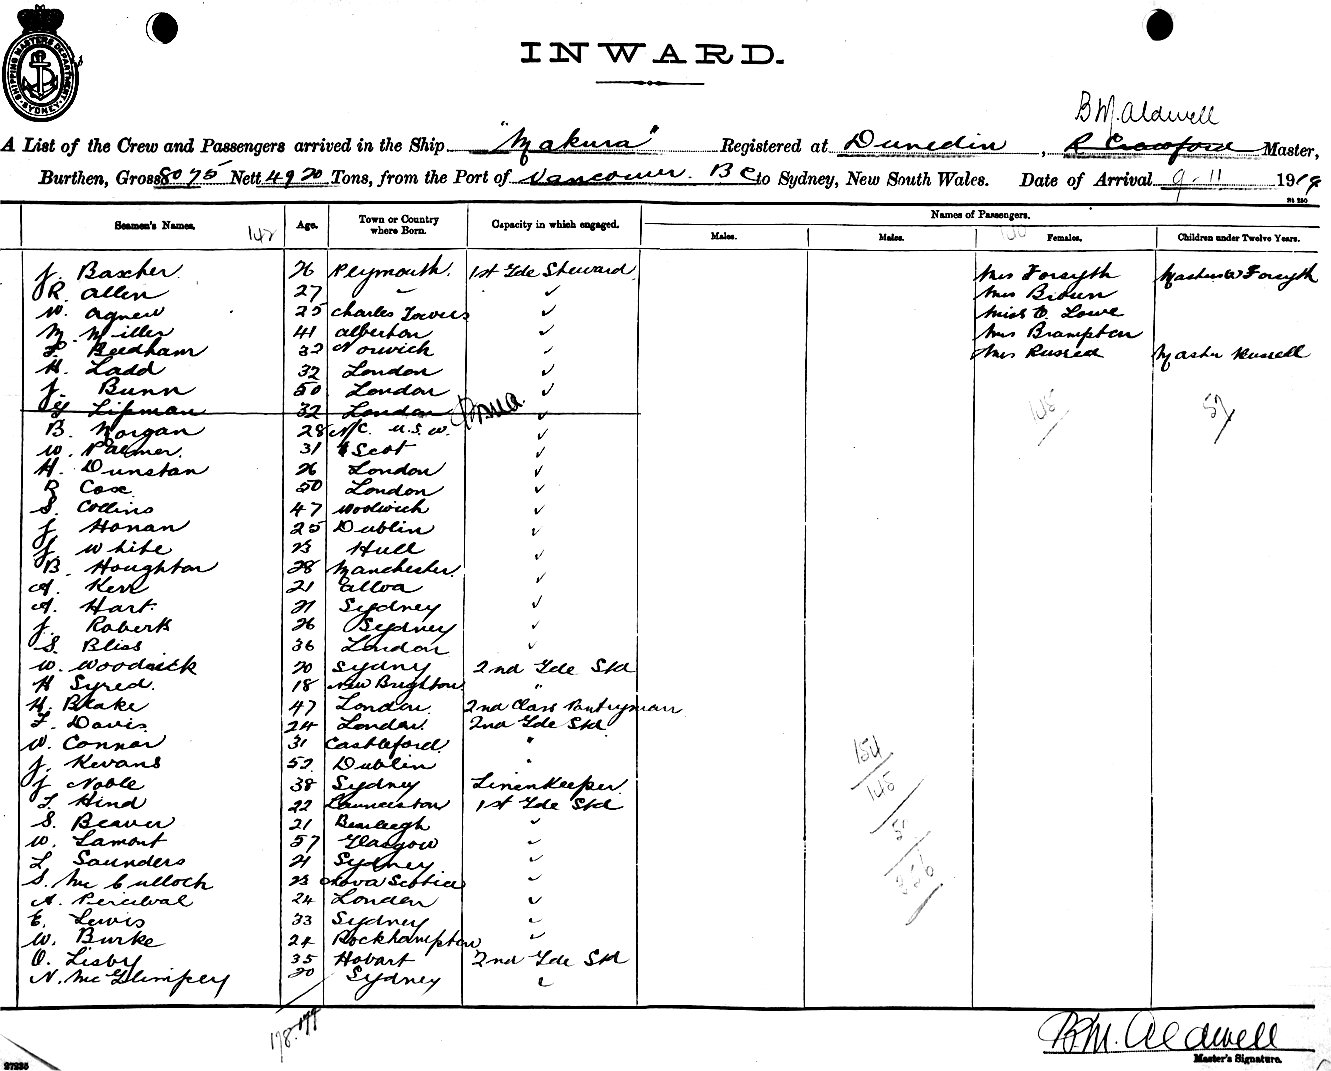 SHIPPING MASTERS DEPARTMENT SYDNEY
INWARD.
B M. Aldwell
A List of the Crew and Passengers arrived in the Ship "Makura" Registered at Dunedin, R Crawford Master,
Burthen, Gross 8075 Nett 4920 Tons, from the Port of Vancouver. B C to Sydney, New South Wales. Date of Arrival 9-11 1919
Seamen's Names. 142 Age. Town or Country where Born. Capacity in which engaged. Names of Passengers.
Males. Males. Females. Children under Twelve Years.
J. Baxcher. 26 Plymouth. 1st Gde Steward Mrs Forsyth Forsyth
R. Allen 27 " ✓ Mrs Brown
W. Agnew 25 Charles Towers ✓ Miss O. Lowe
M. Miller 41 Alberton ✓ Mrs Brampton
F. Beedham 32 Norwich ✓ Mrs Russell Master Russell
H. Ladd 32 London ✓
J. Bunn 50 London ✓
Lipman 32 London ✓
B. Morgan 28 N/C. N.S.W. ✓
W. Palmer. 31 Scot ✓
H. Dunstan 26 London ✓
R Cox. 50 London ✓
S. Collins 47 Woolwich ✓
J. Honan 25 Dublin ✓
J. White 23 Hull ✓
B. Houghton 28 Manchester. ✓
A. Kerr 21 Alloa ✓
A. Hart. 21 Sydney ✓
J. Roberts 26 Sydney ✓
S. Bliss 36 London ✓
W. Woodnick 20 Sydney 2nd Gde Std
H Syred. 18 New Brighton "
H. Blake 47 London. 2nd Class Pantryman
F. Davis. 24 London. 2nd Gde Std
W. Connor 31 Castleford. "
J. Kevans 52 Dublin "
J. Noble 38 Sydney Linenkeeper
T. Hind 22 Launceston 1st Gde Std
S. Beaver 21 Beenleigh ✓
W. Lamont 57 Glasgow ✓
L. Saunders 21 Sydney ✓
S. McCulloch 23 Nova Scotia ✓
A. Percival 24 London ✓
E. Lewis 33 Sydney ✓
W. Burke 24 Rockhampton ✓
O. Lisby 35 Hobart 2nd Gde Std
N. McGlimpey 20 Sydney ✓
154
145
51
350
178.
B.M. Aldwell
Master's Signature.